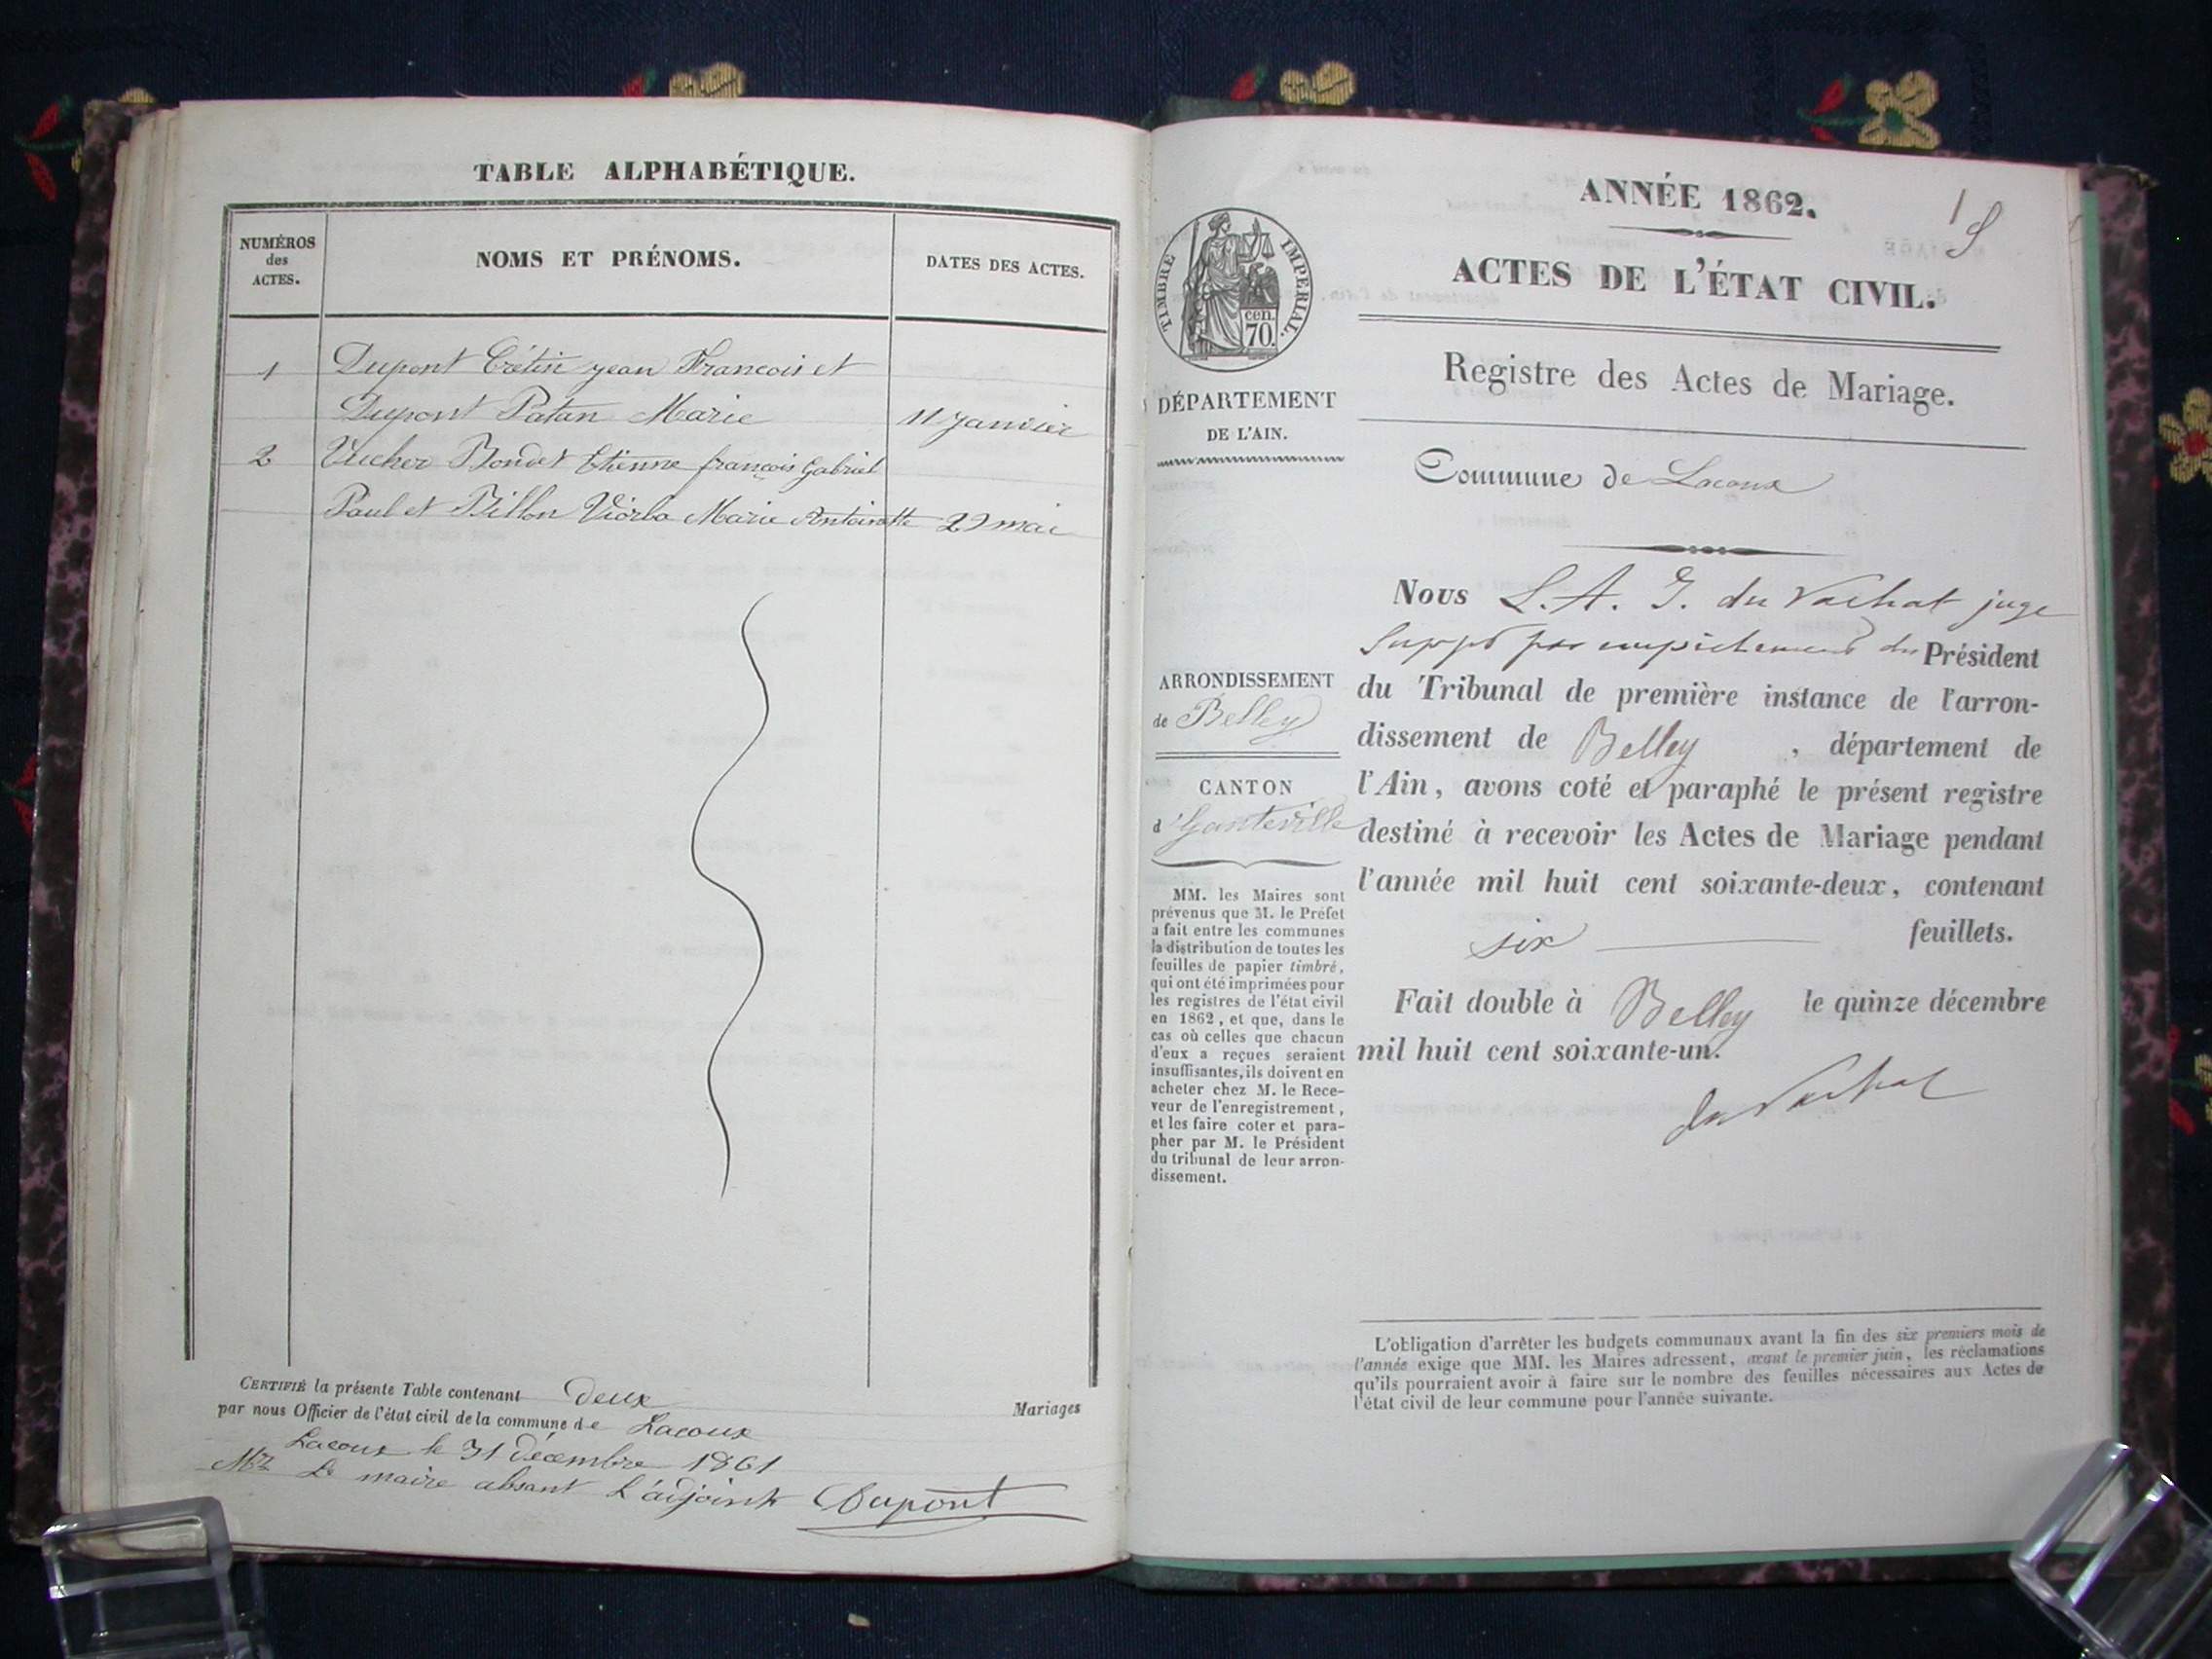 TABLE ALPHABÉTIQUE.
NUMÉROS
des
ACTES.
NOMS ET PRÉNOMS.
DATES DES ACTES.
1 Dupont Crétin jean Francois et
Dupont Patan Marie 11 Janvier
2 Bondet Etienne françois Gabriel
Paul et Billon Viorba Marie Antoinette 29 mai
CERTIFIÉ la présente Table contenant deux Mariages
par nous Officier de l'état civil de la commune de Lacoux
Lacoux le 31 Décembre 1861
Le maire absant L'adjoint Dupont
ANNÉE 1862.
1
ACTES DE L'ÉTAT CIVIL.
TIMBRE IMPÉRIAL.
cen.
70.
Registre des Actes de Mariage.
DÉPARTEMENT
DE L'AIN.
Commune de Lacoux
ARRONDISSEMENT
de Belley
CANTON
d'
MM. les Maires sont
prévenus que M. le Préfet
a fait entre les communes
la distribution de toutes les
feuilles de papier timbré,
qui ont été imprimées pour
les registres de l'état civil
en 1862, et que, dans le
cas où celles que chacun
d'eux a reçues seraient
insuffisantes, ils doivent en
acheter chez M. le Rece-
veur de l'enregistrement,
et les faire coter et para-
pher par M. le Président
du tribunal de leur arron-
dissement.
Nous L. A. G. du Vachat juge
supp par empêchement du Président
du Tribunal de première instance de l'arron-
dissement de Belley, département de
l'Ain, avons coté et paraphé le présent registre
destiné à recevoir les Actes de Mariage pendant
l'année mil huit cent soixante-deux, contenant
six feuillets.
Fait double à Belley le quinze décembre
mil huit cent soixante-un.
du Vachat
L'obligation d'arrêter les budgets communaux avant la fin des six premiers mois de
l'année exige que MM. les Maires adressent, avant le premier juin, les réclamations
qu'ils pourraient avoir à faire sur le nombre des feuilles nécessaires aux Actes de
l'état civil de leur commune pour l'année suivante.